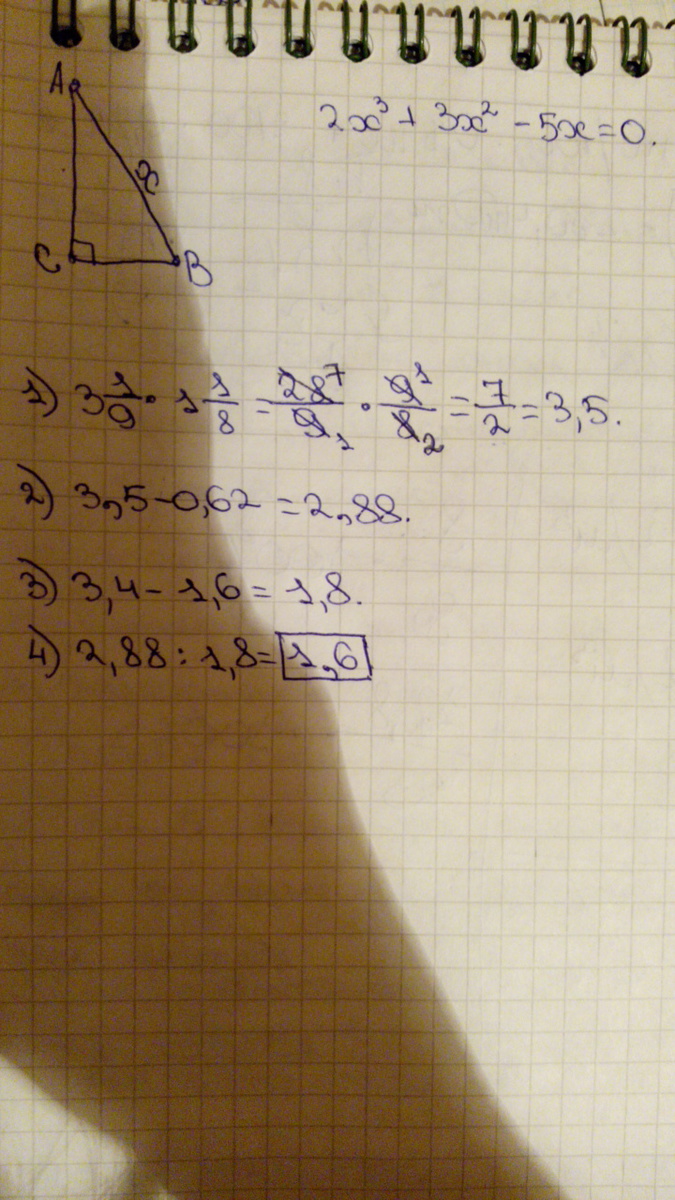 A
2x³ + 3x² - 5x = 0.
x
C
B
1) 3 1/9 · 1 1/8 = 28⁷/9₁ · 9¹/8₂ = 7/2 = 3,5.
2) 3,5 - 0,62 = 2,88.
3) 3,4 - 1,6 = 1,8.
4) 2,88 : 1,8 = 1,6